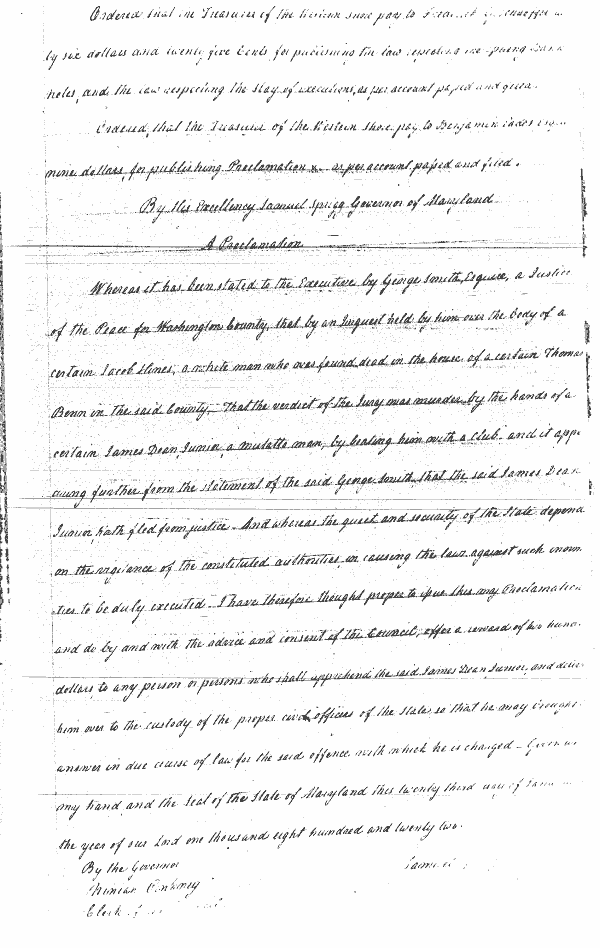 Ordered that the Treasurer of the Western shore pay to
ty six dollars and twenty five Cents for publishing the law repealing
notes, and the law respecting the stay of executions, as per account passed and filed.
Ordered, that the Treasurer of the Western shore pay to Benjamin
nine dollars, for publishing Proclamation &c. as per account passed and filed.
By His Excellency Samuel Sprigg Governor of Maryland
A Proclamation
Whereas it has been stated to the Executive by George Smith, Esquire, a Justice
of the Peace for Washington County, that by an Inquest held by him over the body of a
certain Jacob Hines, a white man who was found dead in the house of a certain Thomas
Benn in the said County, That the verdict of the Jury was murder by the hands of a
certain James Dean Junior, a mulatto man, by beating him with a club and it appe
aring further from the statement of the said George Smith, that the said James Dean
Junior, hath fled from justice. And whereas the quiet and security of the State depend
on the vigilance of the constituted authorities, in causing the laws against such enorm
ties to be duly executed. I have therefore thought proper to issue this my Proclamation
and do by and with the advice and consent of the Council, offer a reward of two hund
dollars to any person or persons who shall apprehend the said James Dean Junior, and deliv
him over to the custody of the proper civil officer of the State, so that he may brought
answer in due course of law for the said offence with which he is charged. Given un
my hand and the Seal of the State of Maryland this twenty third day of
the year of our Lord one thousand eight hundred and twenty two.
By the Governor
Ninian Pinkney
Clerk